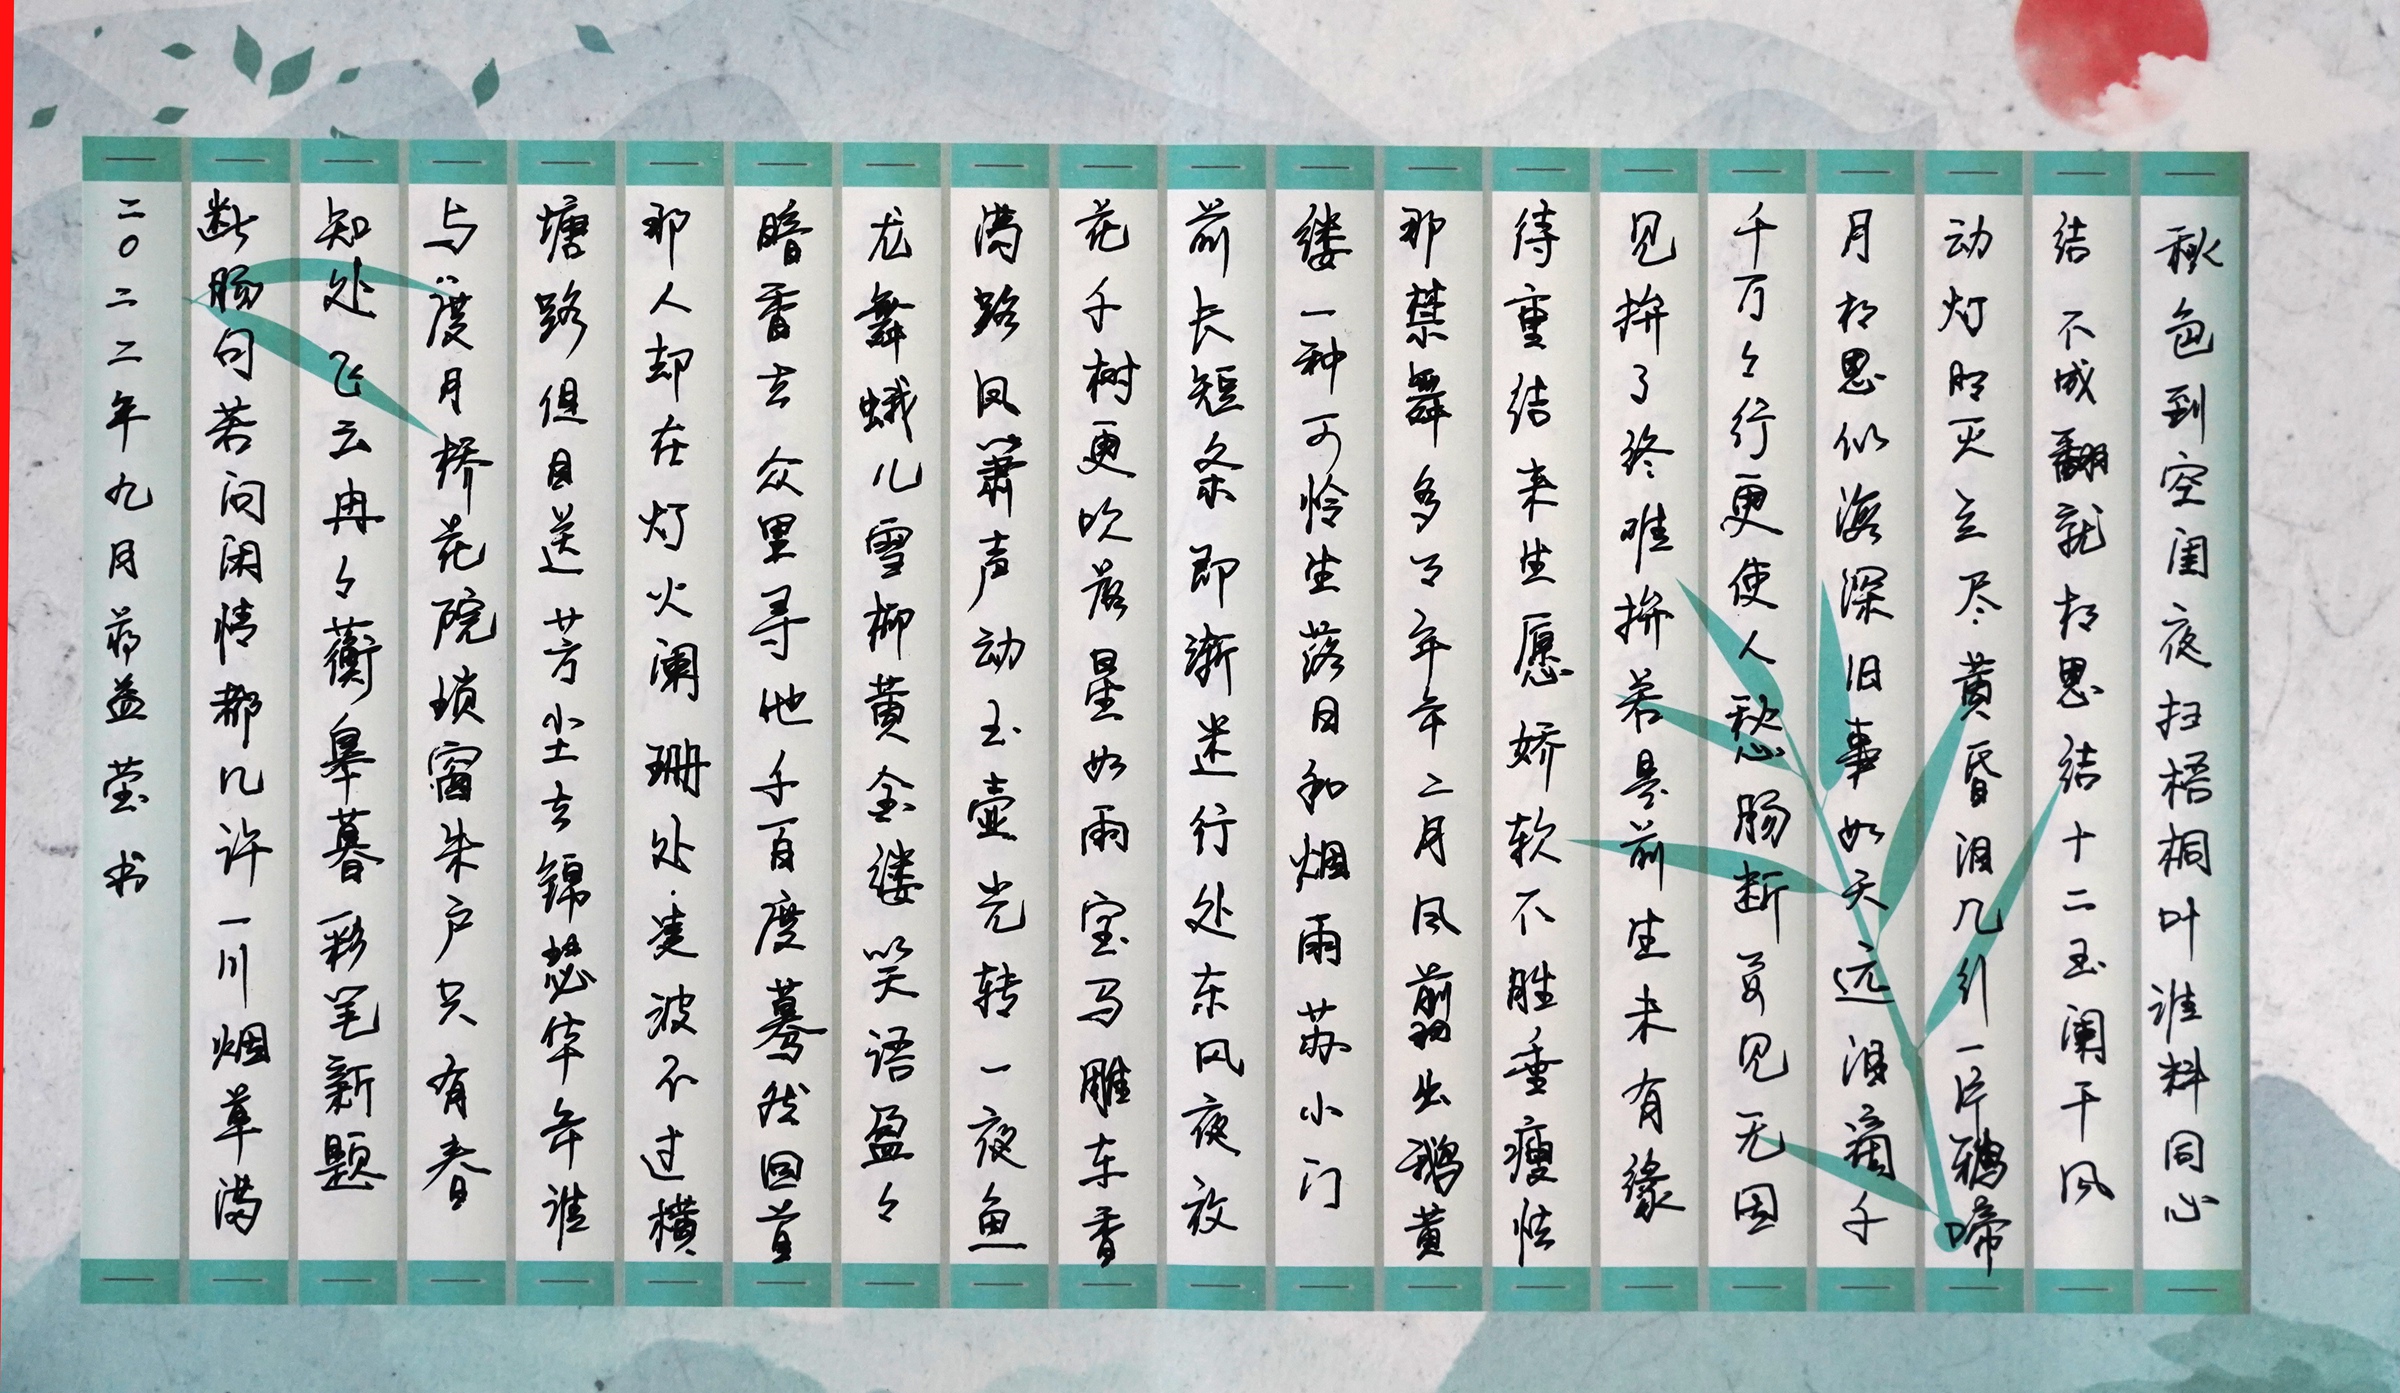 秋色到空闺夜扫梧桐叶谁料同心
结不成翻就相思结十二玉阑干风
动灯明灭立尽黄昏泪几行一片鸦啼
月相思似海深旧事如天远泪滴千
千万々行更使人愁肠断要见无因
见拚了终难拚若是前生未有缘
待重结来生愿娇软不胜垂瘦怯
那禁舞多事年年二月风剪出鹅黄
缕一种可怜生落日和烟雨苏小门
前长短条即渐迷行处东风夜放
花千树更吹落星如雨宝马雕车香
满路凤箫声动玉壶光转一夜鱼
龙舞蛾儿雪柳黄金缕笑语盈々
暗香去众里寻他千百度蓦然回首
那人却在灯火阑珊处凌波不过横
塘路但目送芳尘去锦瑟华年谁
与度月桥花院琐窗朱户只有春
知处飞云冉々蘅皋暮彩笔新题
断肠句若问闲情都几许一川烟草满
二〇二二年九月蒋益莹书